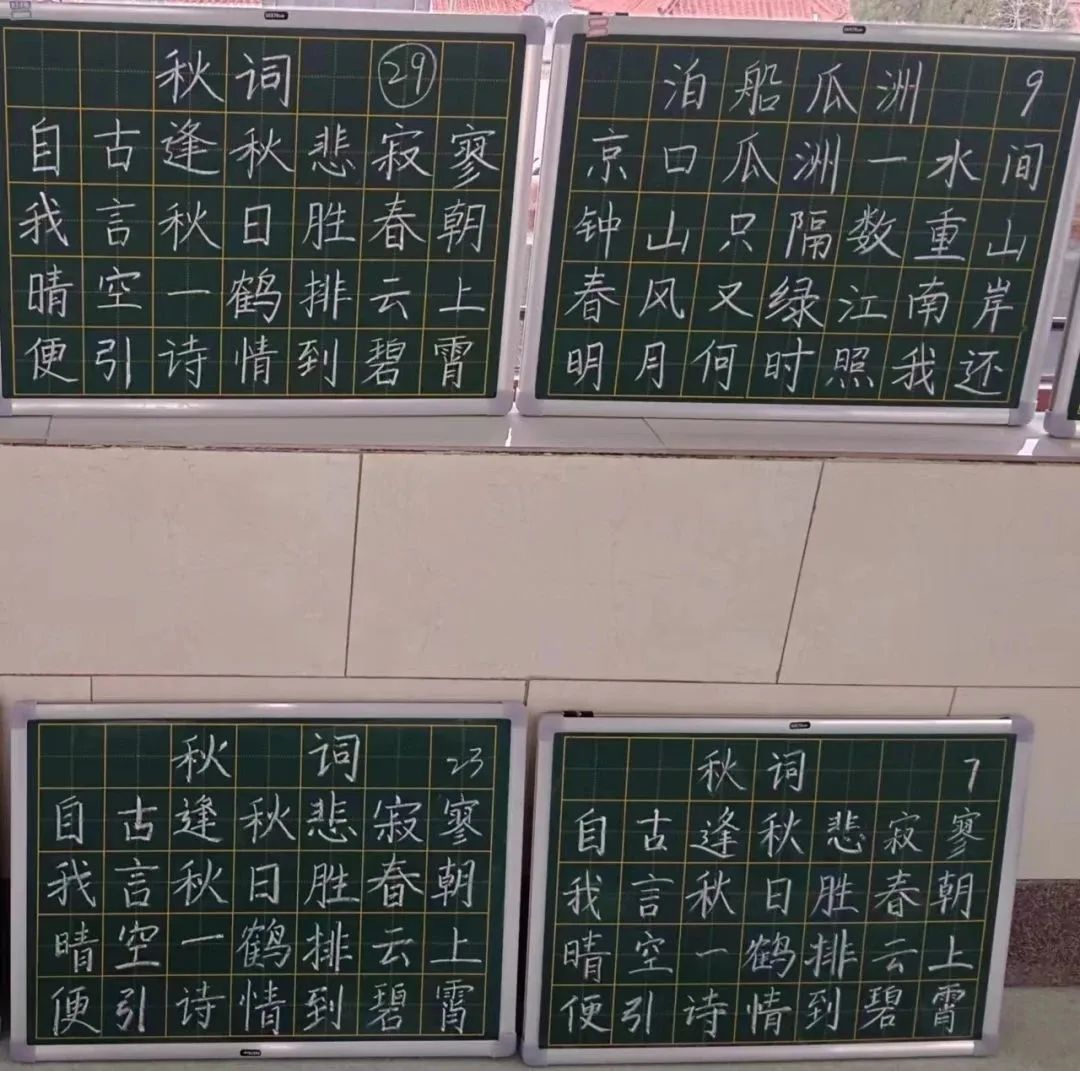 秋词 29
自古逢秋悲寂寥
我言秋日胜春朝
晴空一鹤排云上
便引诗情到碧霄
泊船瓜洲 9
京口瓜洲一水间
钟山只隔数重山
春风又绿江南岸
明月何时照我还
秋词 23
自古逢秋悲寂寥
我言秋日胜春朝
晴空一鹤排云上
便引诗情到碧霄
秋词 7
自古逢秋悲寂寥
我言秋日胜春朝
晴空一鹤排云上
便引诗情到碧霄